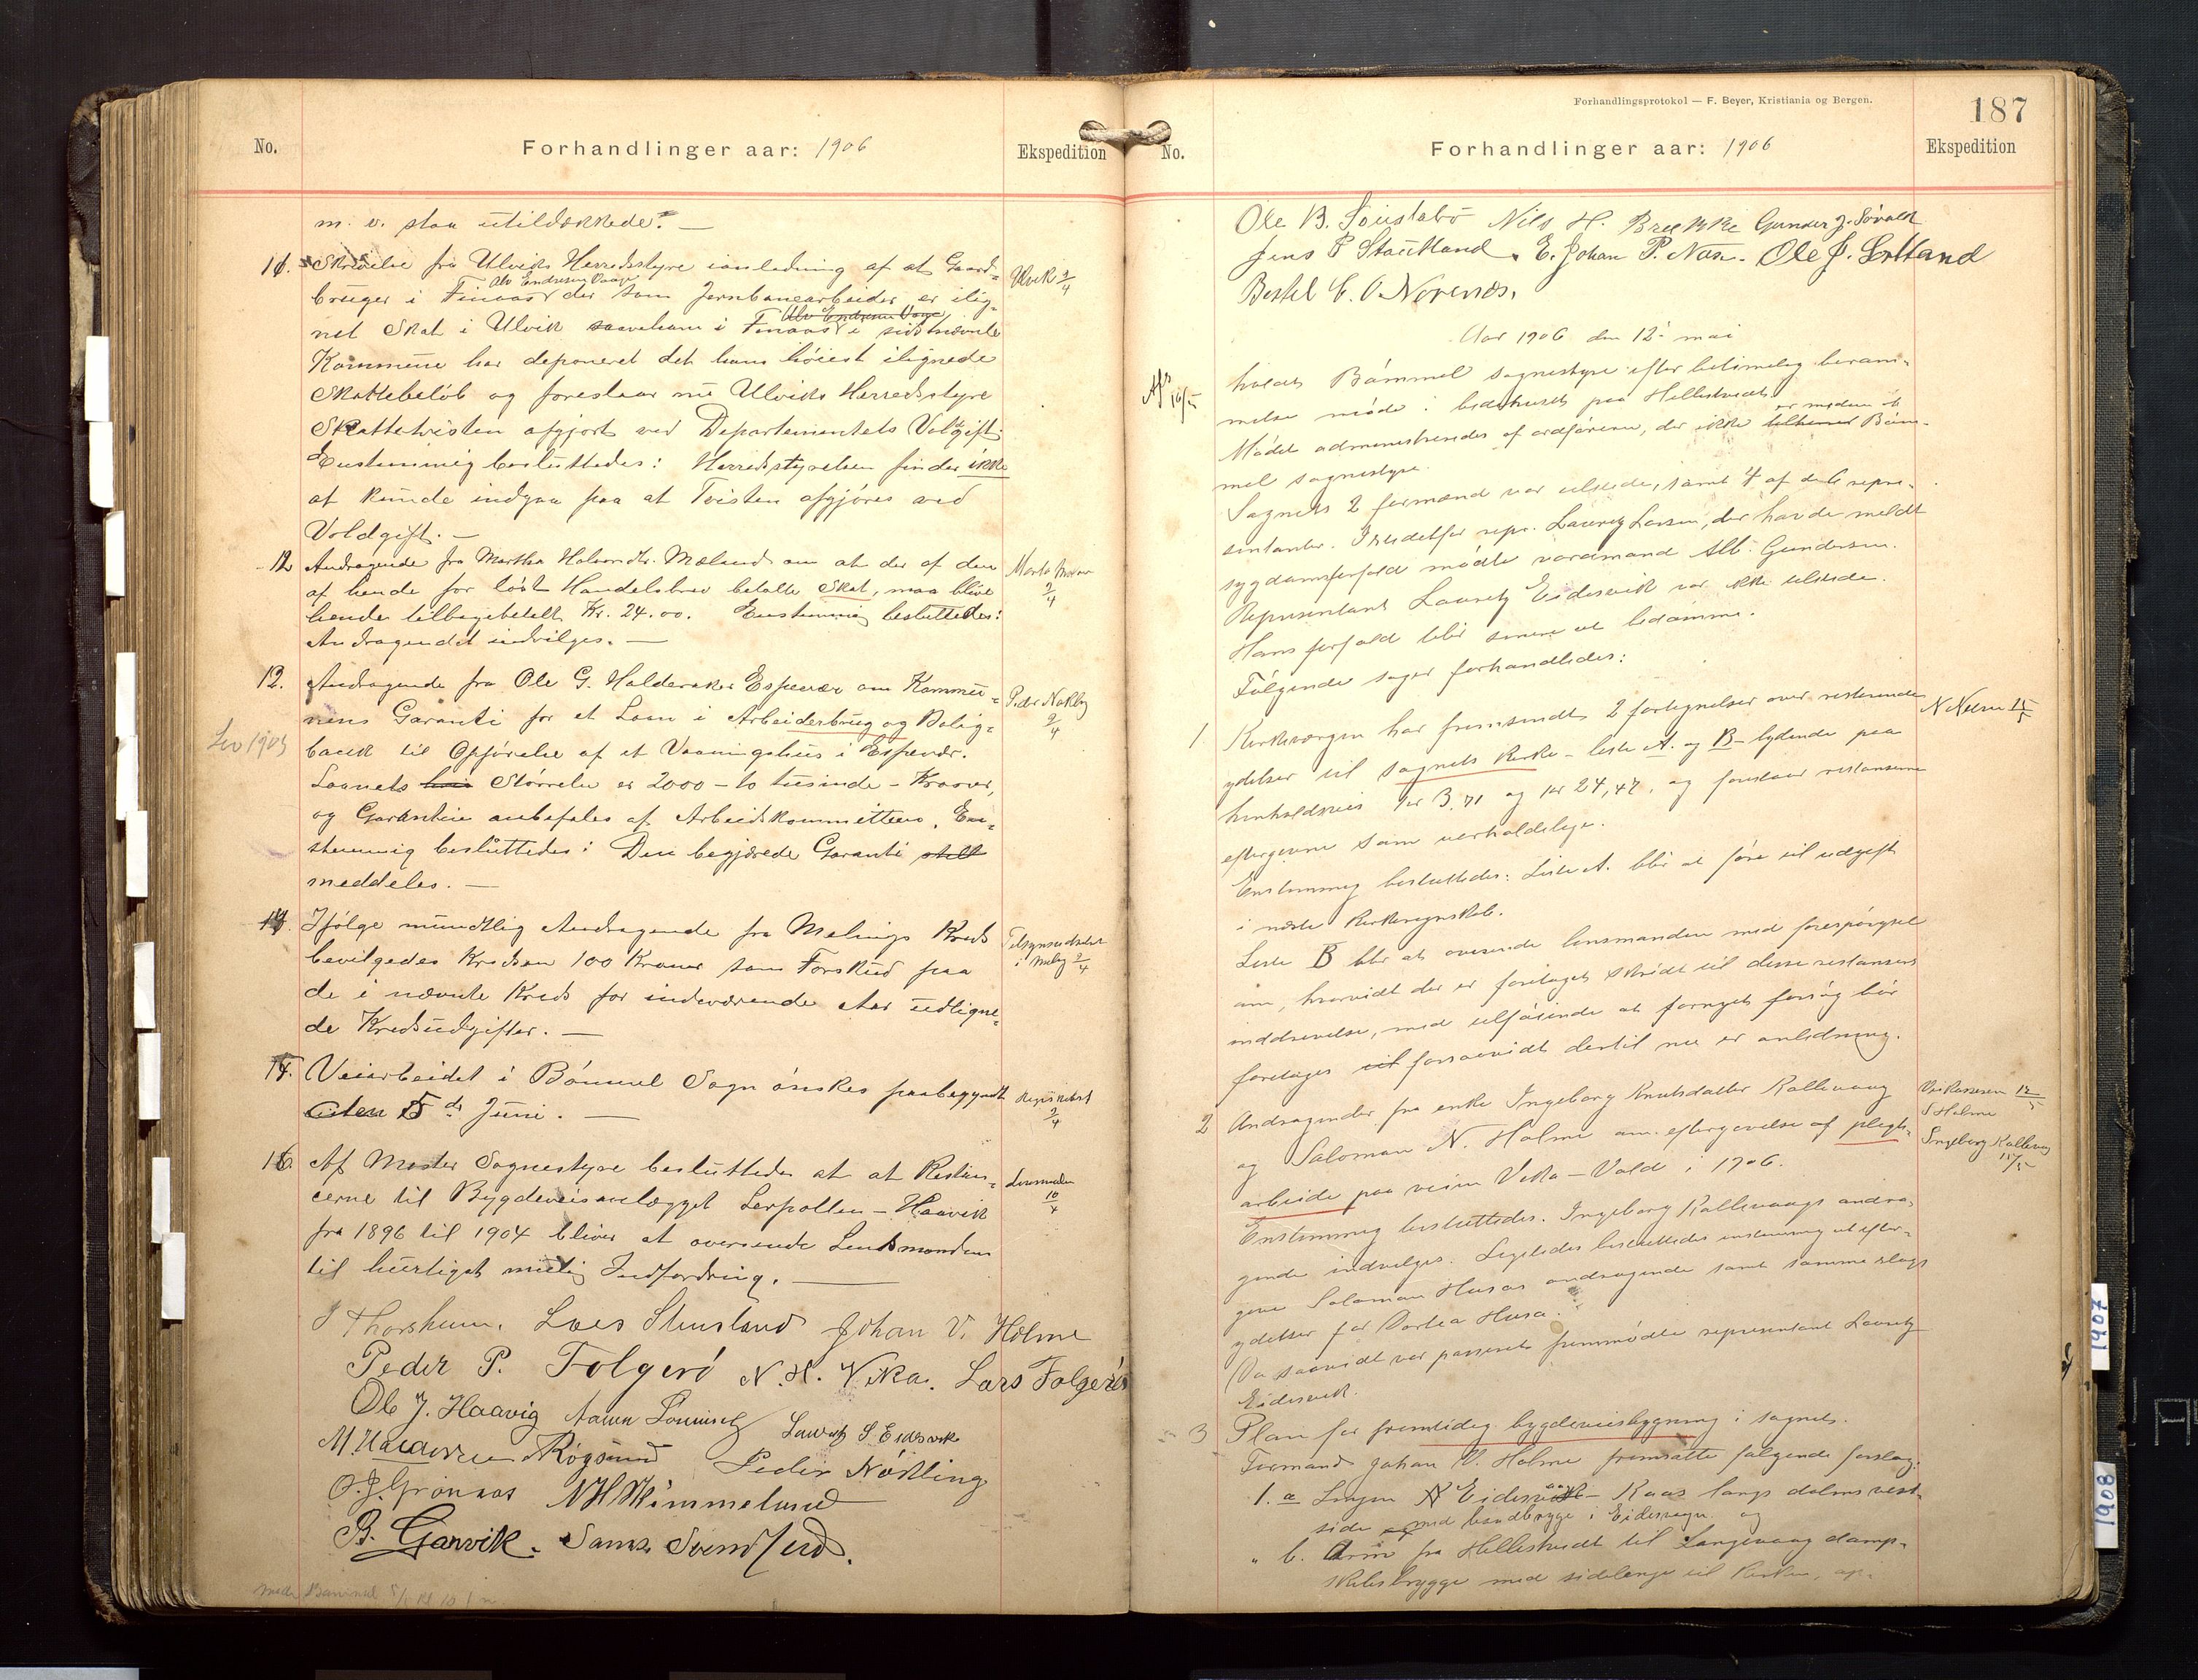 No.
Forhandlinger aar: 1906
Ekspedition
m. v. staa utildækkede." —
11. Skrivelse fra Ulviks Herredsstyre ianledning af at Gaard-
Ulvik 9/4
Alv Endresen Vaage
bruger i Finaas der som Jernbanearbeider er ilig-
Alv Endresen Vaage
net Skat i Ulvik saavelsom i Finaas i sidstnævnte
Kommune har deponeret det ham höiest ilignede
Skattebelöb og foreslaar nu Ulviks Herredsstyre
Skattetvisten afgjort ved Departementets Voldgift.
Enstemmig besluttedes: Herredsstyrelsen finder ikke
at kunde indgaa paa at Tvisten afgjöres ved
Voldgift. —
12. Andragende fra Martha Halvordtr. Mæland om at der af den
9/4
af hende for löst Handelsbrev betalte Skat, maa blive
hende tilbagebetalt Kr. 24.00. Enstemmig besluttedes:
Andragendet indvilges. —
13. Andragende fra Ole G. Halderaker Espevær om Kommu-
Peder Nökling
9/4
nens Garanti for et Laan i Arbeiderbrug og Bolig-
bank til Opförelse af et Vaaningshus i Espevær.
Laanets Störrelse er 2000 - to tusinde - Kroner,
og Garantien anbefales af Arbeidskommitteen. En-
stemmig besluttedes: Den begjærede Garanti still
meddeles. —
14. Ifölge mundtlig Andragende fra Melings Kreds
Tilsynsudvalget
i Meling 9/4
bevilgedes Kredsen 100 Kroner som Forskud paa
de i nævnte Kreds for indeværende Aar udligne-
de Kredsudgifter. —
15. Veiarbeidet i Bömmel Sogn önskes paabegyndt
9/4
den 5de Juni. —
16. Af Moster Sognestyre besluttedes at at Restan-
Lensmanden
10/4
cerne til Bygdeveisanlægget Serpollen - Haavik
fra 1896 til 1904 bliver at oversende Lensmanden
til hurtigst mulig Indfordring. —
J Thorsheim. Lars Stensland Johan V. Holme
Peder P. Folgerö N. H. Vika. Lars Folgerö
Ole J. Haavig Lauritz S Eidesvik
Rögsund Peder Nökling
O. J. Grönnaas N H Hímmelund
B. Garvik.
möde Bömmel 5/5 kl 10 f m
Forhandlingsprotokol — F. Beyer, Kristiania og Bergen.
187
No.
Forhandlinger aar: 1906
Ekspedition
Ole B. Söustabö Nils H. Brekke Gunder J. Sövold
Jens P Stautland. E. Johan P. Næss. Ole J. Sortland
Bertel C. O. Norenes.
Aar 1906 den 12' mai
holdt Bömmel sognestyre efter betimelig beram-
melse möde i bedehuset paa Hillestvedt
er medlem af
Mödet administreredes af ordföreren, der ikke tilhörer Böm-
mel sognestyre.
Sognets 2 formænd var tilstede, samt 4 af de 6 repre-
sentanter. Istedetfor repr. Lauritz Larsen, der havde meldt
sygdomsforfald mödte varamand Alb. Gundersen.
Representant Lauritz Eidesvik var ikke tilstede.
Hans forfald blir senere at bedömme.
Fölgende sager forhandledes:
1 Kirkevergen har fremsendt 2 fortegnelser over resterende
N Nilsen 15/5
ydelser til sognets kirke - liste A. og B - lydende paa
henholdsvis kr 3,71 og kr 24,47, og foreslaar restanserne
eftergivne som uerholdelige.
Enstemmig besluttedes: Liste A. blir at före til udgift
i næste kirkeregnskab.
Liste B blir at oversende lensmanden med forespörgsel
om, hvorvidt der er foretaget skridt til disse restansers
inddrivelse, med tilföiende at fornyet forsög bör
foretages forsaavidt dertil nu er anledning.
2 Andragender fra enke Ingeborg Knutsdatter Kallevaag
12/5
S Holme
og Salomon N. Holme om eftergivelse af pligt-
Ingeborg Kallevaag
15/5
arbeide paa veien Vika - Vold i 1906.
Enstemmig besluttedes. Ingeborg Kallevaags andra-
gende indvilges. Ligeledes besluttedes enstemmig at efter-
give Salomon Husas andragende samt samme slags
ydelser for Dortea Husa.
(Da saavidt var passeret fremmödte representant Lauritz
Eidesvik.
3 Plan for fremtidig bygdeveisbygning i sognet.
Formand Johan V. Holme fremsatte fölgende forslag:
1. a Linjen Eidesvik - Kaas langs dalens vest-
side med landbrygge i Eidesvaagen og
" b. Arm fra Hillestvedt til Langevaag damp-
skibsbrygge med sidelinje til kirken, op-
1907
1908